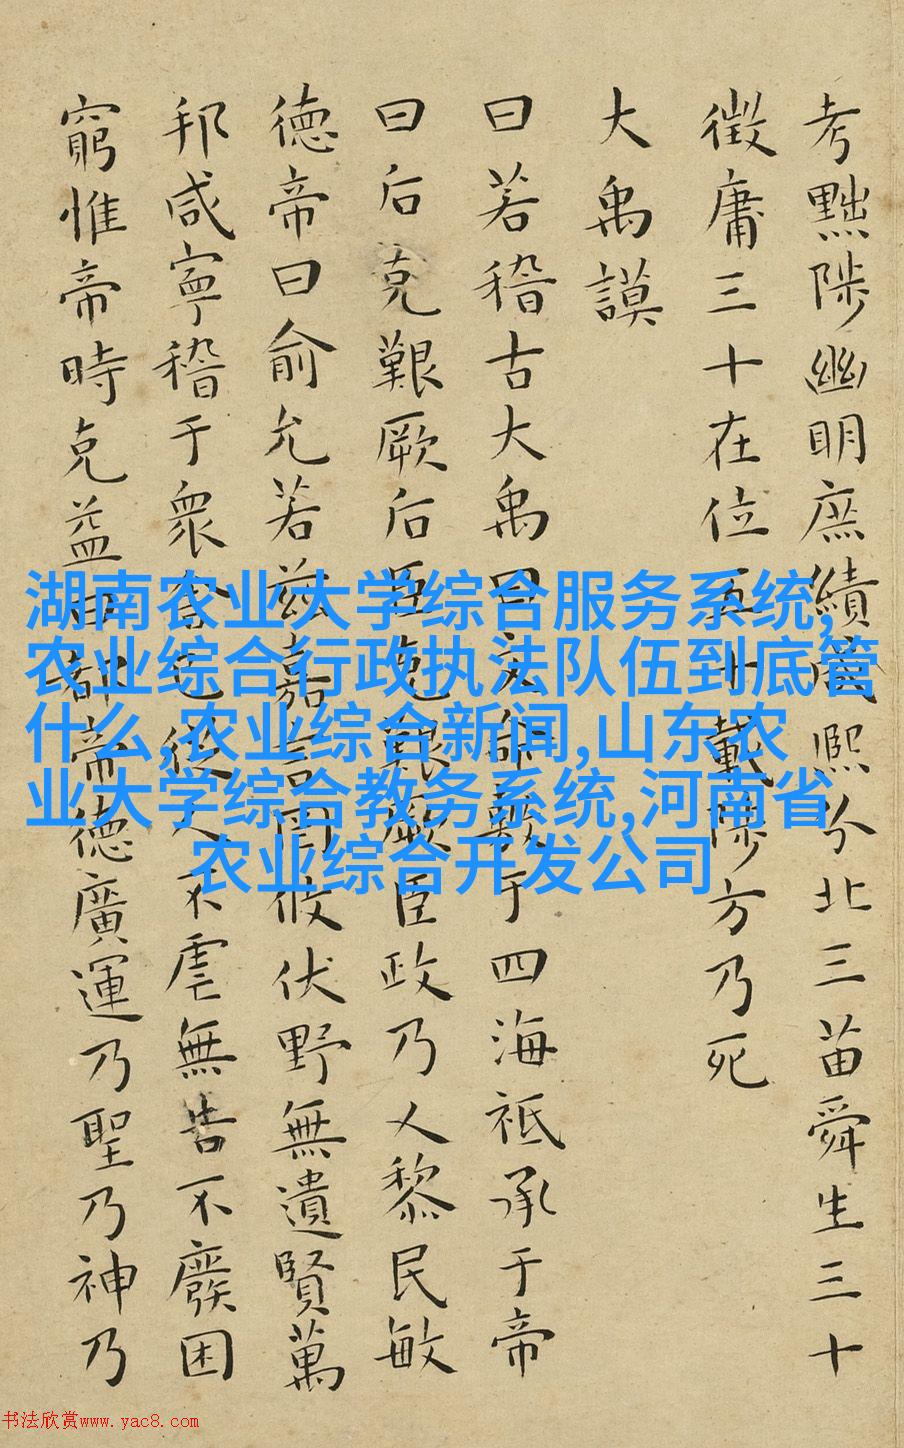 考黜陟幽明庶績咸熙分北三苗舜生三十
徵庸三十在位五十載陟方乃死
大禹謨
曰若稽古大禹曰文命敷于四海祗承于帝
曰后克艱厥后臣克艱厥臣政乃乂黎民敏
德帝曰俞允若茲嘉言罔攸伏野無遺賢萬
邦咸寧稽于眾舍己從人不虐無告不廢困
窮惟帝時克益曰都帝德廣運乃聖乃神乃
湖南农业大学综合服务系统,
农业综合行政执法队伍到底管
什么,农业综合新闻,山东农
业大学综合教务系统,河南省
农业综合开发公司
书法欣赏www.yac8.com